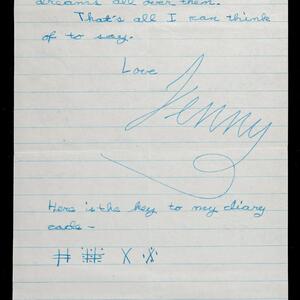 dreams all over them.
That's all I can think
of to say.
Love
Jenny
Here is the key to my diary
code -